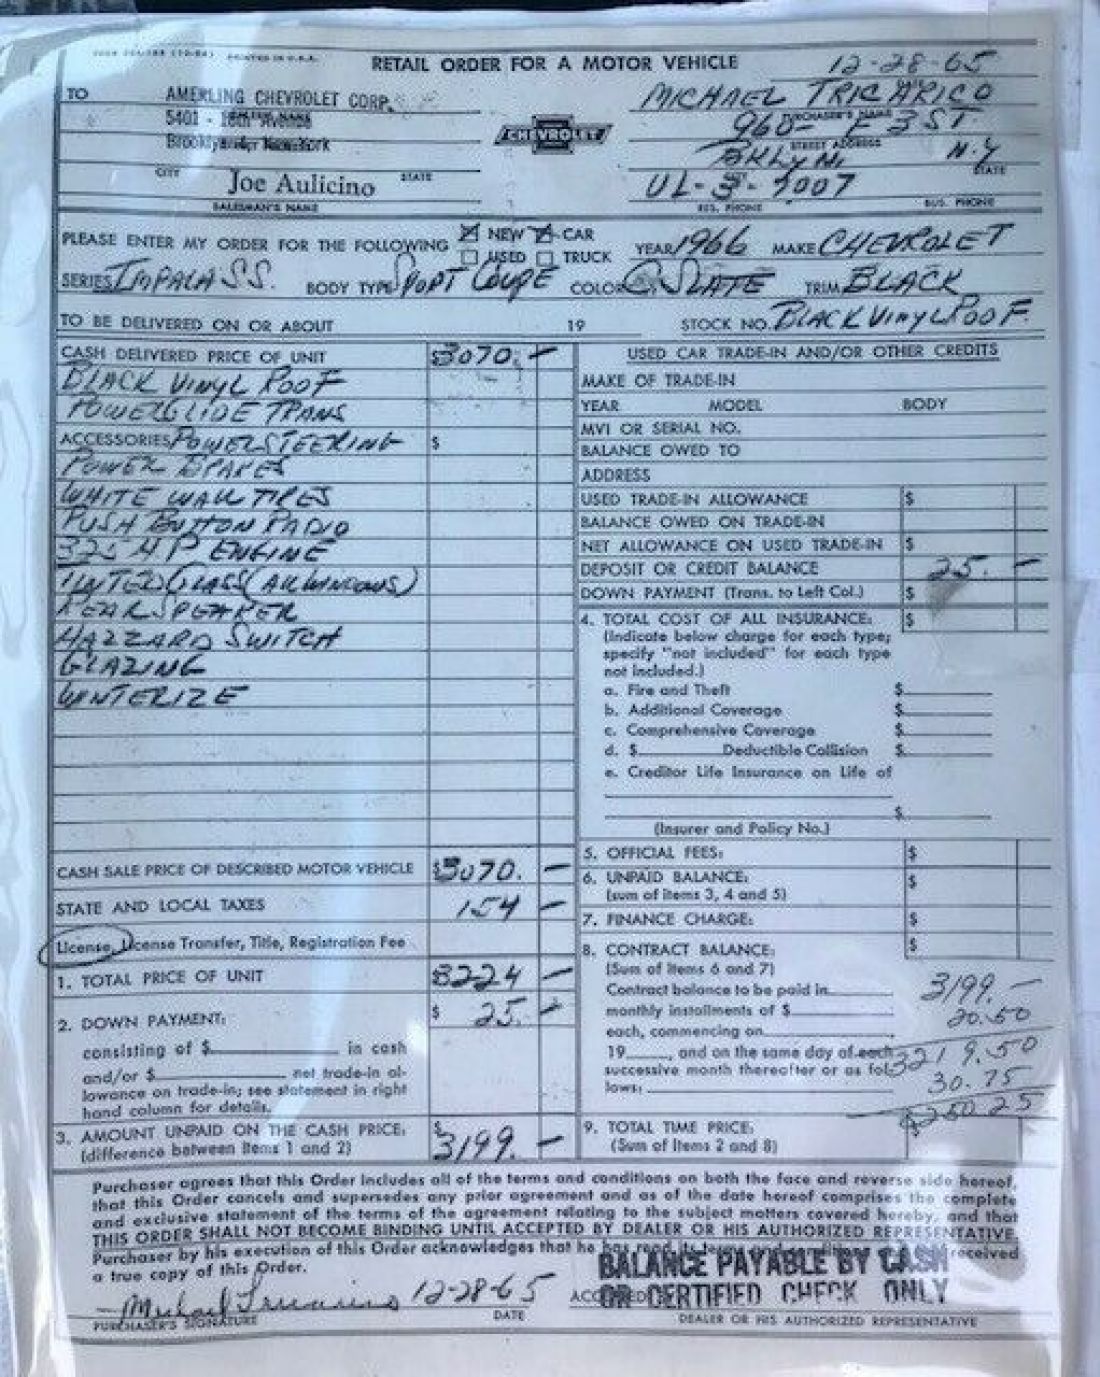 PRINTED IN U.S.A.
RETAIL ORDER FOR A MOTOR VEHICLE
12-28-65
TO
AMERLING CHEVROLET CORP.
MICHAEL TRICARICO
PURCHASER'S NAME
5401 - 18th Avenue
CHEVROLET
960- E 3 ST
STREET ADDRESS
Brooklyn, New York
BKLYN. N.Y
CITY STATE
STATE
Joe Aulicino
UL-3-5007
SALESMAN'S NAME
RES. PHONE BUS. PHONE
PLEASE ENTER MY ORDER FOR THE FOLLOWING
NEW CAR
USED TRUCK
YEAR 1966 MAKE CHEVROLET
SERIES IMPALA SS. BODY TYPE SPORT COUPE COLOR SLATE TRIM BLACK
TO BE DELIVERED ON OR ABOUT 19 STOCK NO. BLACK VINYL ROOF.
CASH DELIVERED PRICE OF UNIT $3070.-
BLACK VINYL ROOF
POWERGLIDE TRANS
ACCESSORIES POWER STEERING $
POWER BRAKES
WHITE WALL TIRES
PUSH BUTTON RADIO
325 HP ENGINE
TINTED GLASS (ALL WINDOWS)
REAR SPEAKER
HAZZARD SWITCH
GLAZING
WINTERIZE
CASH SALE PRICE OF DESCRIBED MOTOR VEHICLE $3070.-
STATE AND LOCAL TAXES 154 -
License, License Transfer, Title, Registration Fee
1. TOTAL PRICE OF UNIT $3224 -
2. DOWN PAYMENT: $ 25.-
consisting of $ in cash
and/or $ net trade-in al-
lowance on trade-in; see statement in right
hand column for details.
3. AMOUNT UNPAID ON THE CASH PRICE: $3199.-
(difference between Items 1 and 2)
USED CAR TRADE-IN AND/OR OTHER CREDITS
MAKE OF TRADE-IN
YEAR MODEL BODY
MVI OR SERIAL NO.
BALANCE OWED TO
ADDRESS
USED TRADE-IN ALLOWANCE $
BALANCE OWED ON TRADE-IN
NET ALLOWANCE ON USED TRADE-IN $
DEPOSIT OR CREDIT BALANCE 25.-
DOWN PAYMENT (Trans. to Left Col.) $
4. TOTAL COST OF ALL INSURANCE: $
(Indicate below charge for each type;
specify "not included" for each type
not included.)
a. Fire and Theft $
b. Additional Coverage $
c. Comprehensive Coverage $
d. $ Deductible Collision $
e. Creditor Life Insurance on Life of
$
(Insurer and Policy No.)
5. OFFICIAL FEES: $
6. UNPAID BALANCE: $
(sum of items 3, 4 and 5)
7. FINANCE CHARGE: $
8. CONTRACT BALANCE: $
(Sum of Items 6 and 7)
Contract balance to be paid in 3199.-
monthly installments of $ 20.50
each, commencing on
19 , and on the same day of each 3219.50
successive month thereafter or as fol-
lows: 30.75
$250 25
9. TOTAL TIME PRICE:
(Sum of Items 2 and 8)
Purchaser agrees that this Order includes all of the terms and conditions on both the face and reverse side hereof,
that this Order cancels and supersedes any prior agreement and as of the date hereof comprises the complete
and exclusive statement of the terms of the agreement relating to the subject matters covered hereby, and that
THIS ORDER SHALL NOT BECOME BINDING UNTIL ACCEPTED BY DEALER OR HIS AUTHORIZED REPRESENTATIVE.
Purchaser by his execution of this Order acknowledges that he has read its terms received
a true copy of this Order.
BALANCE PAYABLE BY CASH
OR CERTIFIED CHECK ONLY
Michael Tricarico 12-28-65
PURCHASER'S SIGNATURE DATE DEALER OR HIS AUTHORIZED REPRESENTATIVE